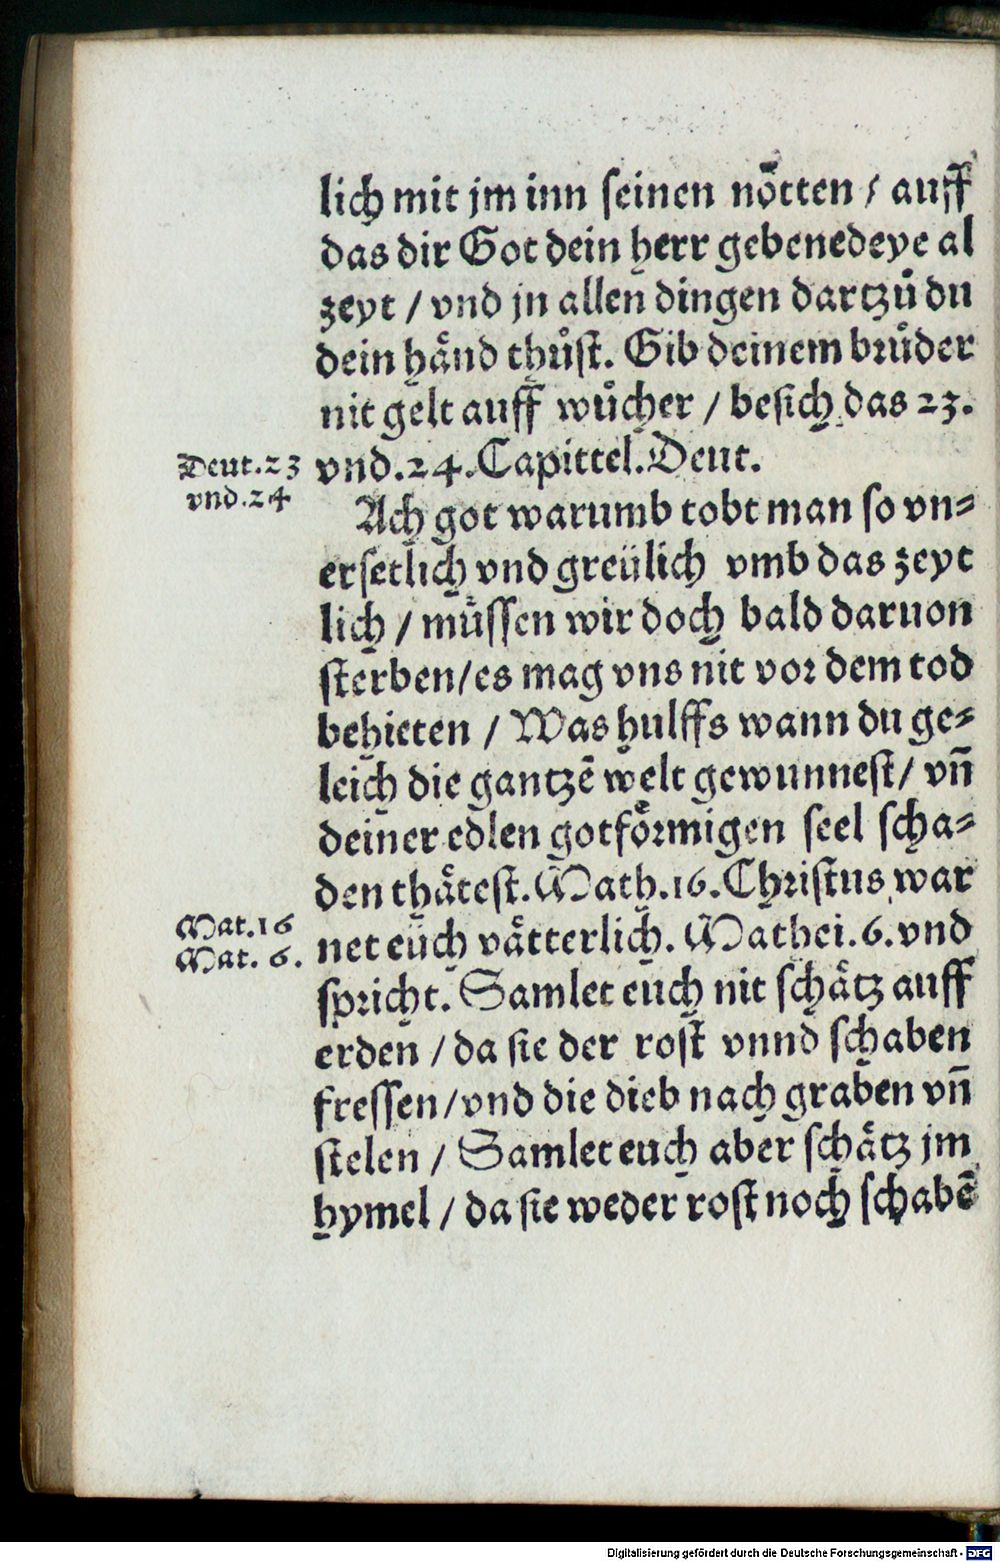 lich mit jm inn seinen nötten / auff
das dir Got dein herr gebenedeye al
zeyt / vnd jn allen dingen dartzů du
dein händ thůst. Gib deinem brůder
nit gelt auff wůcher / besich das 23.
Deut.23
vnd.24
vnd.24.Capittel.Deut.
Ach got warumb tobt man so vn⸗
ersetlich vnd greülich vmb das zeyt
lich / müssen wir doch bald daruon
sterben/es mag vns nit vor dem tod
behieten / Was hulffs wann du ge⸗
leich die gantzē welt gewunnest/ vñ
deiner edlen gotförmigen seel scha⸗
den thätest.Math.16.Christus war
Mat.16
Mat. 6.
net euch vätterlich. Mathei.6.vnd
spricht. Samlet euch nit schätz auff
erden / da sie der rost vnnd schaben
fressen/vnd die dieb nach graben vñ
stelen / Samlet euch aber schätz jm
hymel / da sie weder rost noch schabē
Digitalisierung gefördert durch die Deutsche Forschungsgemeinschaft - DFG